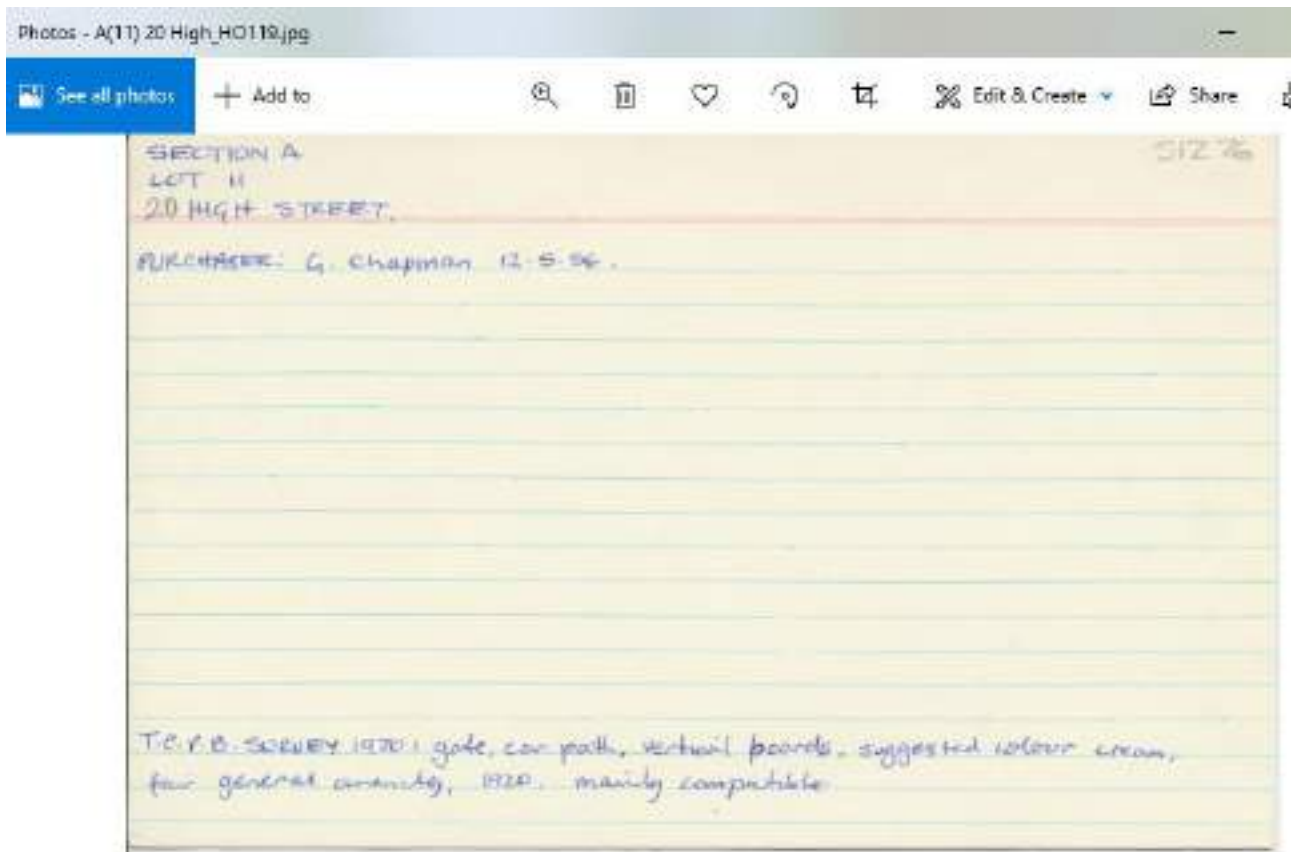 Photos - A(11) 20 High_HO119.jpg
See all photos + Add to Edit & Create Share
SECTION A
LOT 11
20 HIGH STREET.
PURCHASER: G. Chapman 12.5.56.
T.C.P.B. SURVEY 1970: gate, car path, vertical boards, suggested colour cream,
fair general amenity, 1920. mainly compatible